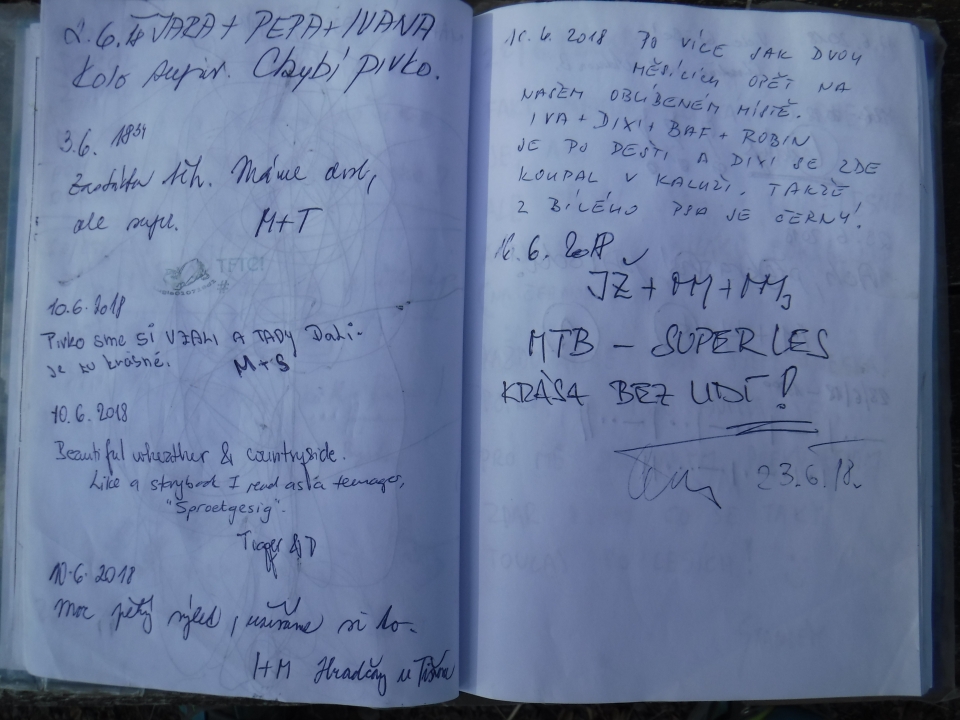 2.6. JARA + PEPA + IVANA
Kolo super. Chybí pivko.
3.6. 18³⁴
Zastávka Máme dost,
ale super. M+T
TFTC!
10.6.2018
Pivko sme SI VZALI A TADY Dali-
je tu krásně. M+S
10.6.2018
Beautiful wheather & countryside.
Like a storybook I read as a teenager,
"Sproetgesig".
Tigger & D
10.6.2018
Moc pěkný výlet, užíváme si to.
I+M Hradčany u Tišnova
6.2018 PO VÍCE JAK DVOU
MĚSÍCÍCH OPĚT NA
NAŠEM OBLÍBENÉM MÍSTĚ.
IVA + DIXI + BAF + ROBIN
JE PO DEŠTI A DIXI SE ZDE
KOUPAL V KALUŽI. TAKŽE
Z BÍLÉHO PSA JE ČERNÝ!
16.6.2018
JŽ + MM + MM
MTB – SUPER LES
KRÁSA BEZ LIDÍ!
23.6.18.